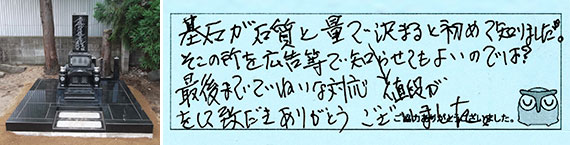 基石が石質と量で決まると初めて知りました。
そこの所を広告等で知らせてもよいのでは?
最後までていねいな対応 値段が
をして致だきありがとう ござ いました
ご協力ありがとうございました。